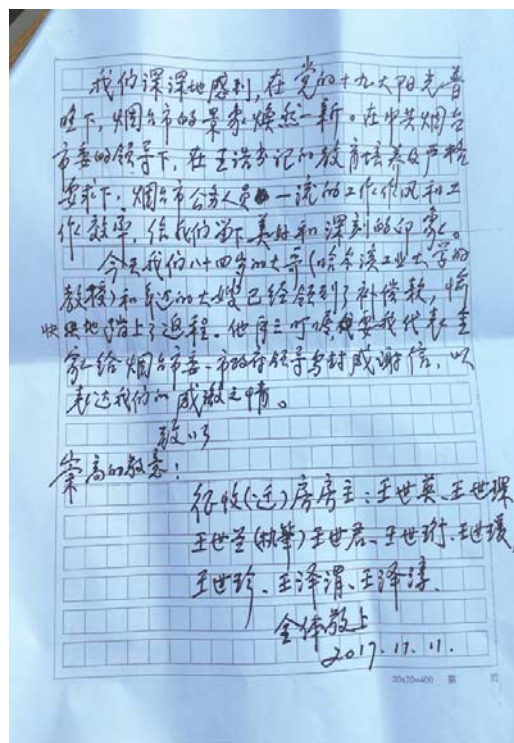 我们深深地感到,在党的十九大阳光普
照下,烟台市的景象焕然一新。在中共烟台
市委的领导下,在王浩书记的教育培养及严格
要求下,烟台市公务人员一流的工作作风和工
作效率,给我们留下美好和深刻的印象。
今天我们八十四岁的大哥(哈尔滨工业大学的
教授)和年迈的大嫂已经领到了补偿款,愉
快地踏上了返程。他再三叮嘱我要我代表全
家给烟台市委、市政府领导写封感谢信,以
表达我们的感激之情。
致以
崇高的敬意!
征收(迁)房房主:王世英、王世琛
王世莹(执笔)王世君、王世珩、王世瑗、
王世珍、王泽渭、王泽淳、
全体敬上
2017.11.11.
20x20=400 第 页